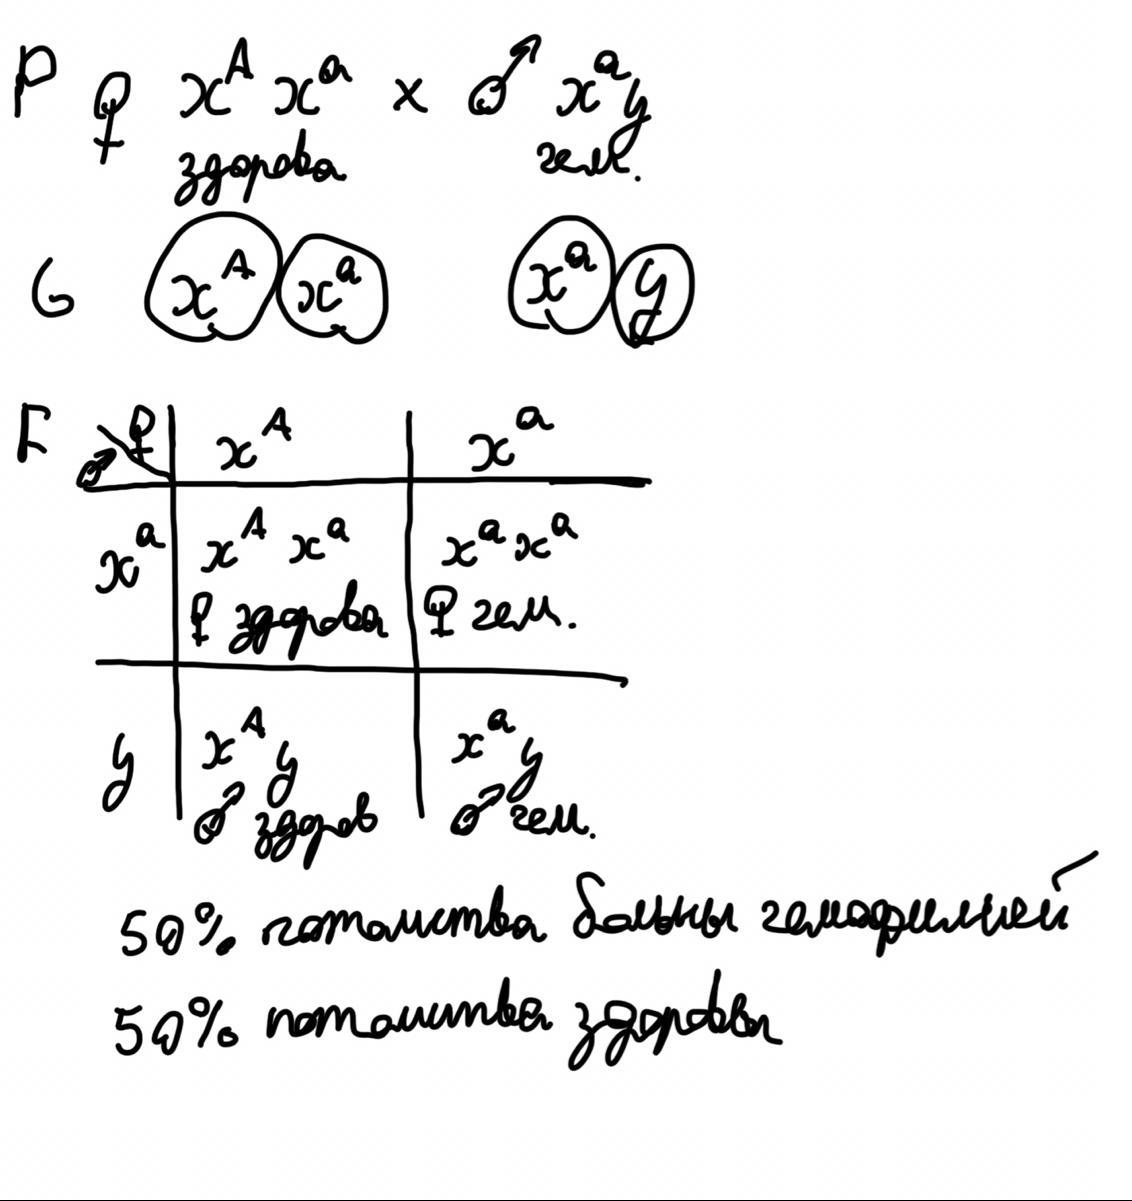 P ♀ xᴬ xᵃ × ♂ xᵃy
здорова гем.
G xᴬ xᵃ xᵃ y
F ♂ ♀ xᴬ xᵃ
xᵃ xᴬ xᵃ xᵃxᵃ
♀ здорова ♀ гем.
y xᴬy xᵃy
♂ здоров ♂ гем.
50% потомства больны гемофилией
50% потомства здоровы